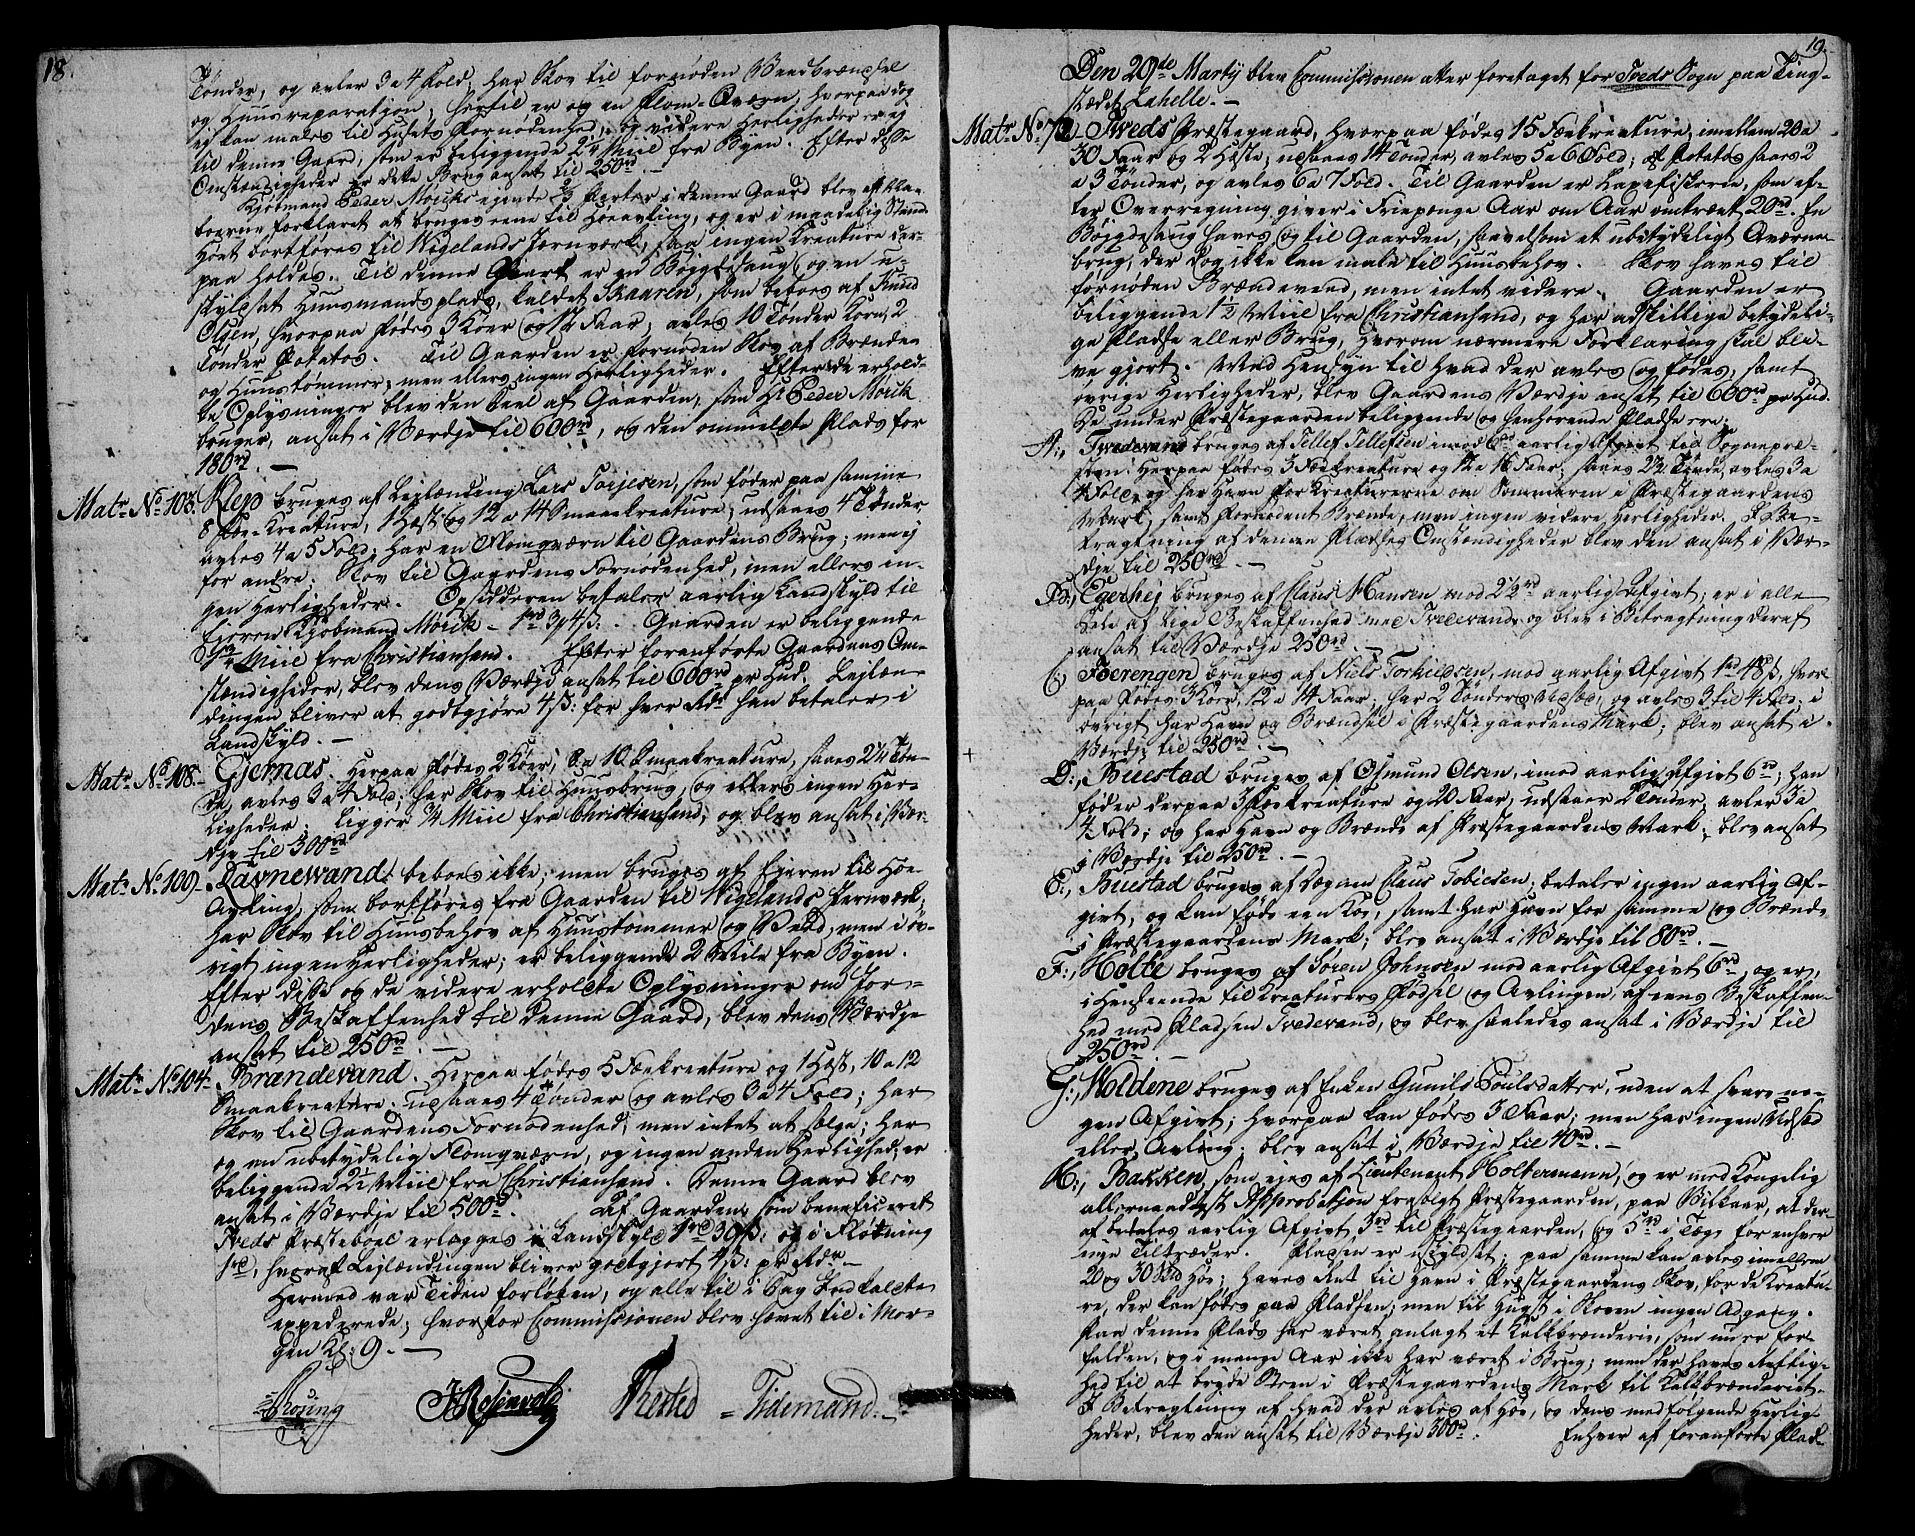 18.
Tønder, og avler 3 a 4 Fold, har Skov til fornøden Veedbrændsel
og Huusreparation; hertil er og en Flom-Qværn, hvorpaa dog
ej kan males til Husets Fornødenhed, og videre Herligheder er ej
til denne Gaard, som er beliggende 2¼ Miil fra Byen. Efter disse
Omstændigheder er dette Brug ansat til 250rd.
Kjøbmand Peder Mørchs ejende 2/3 Parter i denne Gaard blev af
forklaret at bruges ene til Høeavling, og er i maadelig Stand
Høet bortføres til Wigelands Jernværk, saa ingen Kreature der-
paa holdes. Til denne Part er en Bøjgdesaug, og en u-
skyldsat Huusmandsplads, kaldet Skaaren, som beboes af Knud
Olsen, hvorpaa fødes 3 Køer og 14 Faar; avles 10 Tønder Korn, 2
Tønder Potatos. Til Gaarden er fornøden Skov af Brænde
og Huustømmer, men ellers ingen Herligheder. Efter de erhold-
te Oplysninger blev den Deel af Gaarden, som Hr. Peder Mørch
bruger, ansat i Værdje til 600rd, og den ommeldte Plads for
180rd. —
Matr. No 103. Reep bruges af Lejlænding Lars Torjesen, som føder paa samme
8 Føe-Kreature, 1 Hæst og 12 a 14 Smaaekreature; udsaaes 4 Tønder
avles 4 a 5 Fold; har en Flomqværn til Gaardens Brug; men ej
for andre. Skov til Gaardens Fornødenhed, men ellers in-
gen Herligheder. Opsidderen betaler aarlig Landskyld til
Ejeren Kjøbmand Mørch - 1rd 3 4ß. Gaarden er beliggende
Miil fra Christiansand. Efter foranførte Gaardens Om-
stændigheder, blev dens Værdje ansat til 600rd pr Hud. Lejlæn-
dingen bliver at godtgjøre 4ß: for hver Rdr han betaler i
Landskyld. —
Matr. No 108. Gjernas. Herpaa fødes 2 Køer, 8 a 10 Smaakreature, saaes 2½ Tøn-
de, avles 3 a 4 Fold; har Skov til Huusbrug, og ellers ingen Her-
ligheder. Ligger ¾ Miil fra Christiansand, og blev ansat i Vær-
dje til 300rd
Matr. No 109. Ravnewand beboes ikke, men bruges af Ejeren til Høe-
Avling, som bortføres fra Gaarden til Wigelands Jernværk;
har Skov til Huusbehov af Huustømmer og Veed, men i øv-
rigt ingen Herligheder; er beliggende 2 Mile fra Byen.
Efter disse og de videre erholdte Oplysninger om Jor-
dens Beskaffenhed til denne Gaard, blev dens Værdje
ansat til 250rd. —
Matr. No 104. Brændevand. Herpaa fødes 5 Fækreature og 1 Hæst, 10 a 12
Smaakreature. udsaaes 4 Tønder og avles 3 a 4 Fold; har
Skov til Gaardens Fornødenhed, men intet at sælge; har
og en ubetydelig Flomqværn, og ingen anden Herlighed; er
beliggende 2½ Miil fra Christiansand. Denne Gaard blev
ansat i Værdje til 500rd. Af Gaarden som beneficeret
Tveds Præsteboel erlægges i Landskyld 1rd 39ß: og i Fløtning
1rd, hvoraf Lejlændingen bliver godtgjort 4ß: pr Rdr. —
Hermed var Tiden forløben, og alle til i Dag Indkaldte
expederede; hvorfor Commissionen blev hævet til i Mor-
gen Kl: 9. —
JRosenvold Thested Tidemand.
19.
Den 29de Martij blev Commissionen atter foretaget for Tveds Sogn paa Ting-
stædet Lahelle. —
Matr. No 72. Tveds Præstegaard, hvorpaa fødes 15 Fækreature, imellem 20 a
30 Faar og 2 Hæste; udsaaes 14 Tønder, avles 5 a 6 Fold; af Potatos saaes 2
a 3 Tønder, og avles 6 a 7 Fold. Til Gaarden er Laxefiskerie, som ef-
ter Overregning giver i Friepenge Aar om Aar omtrent 20rd. En
Bøjgdesaug haves og til Gaarden, saavelsom et ubetydeligt Qværne-
brug, der dog ikke kan male til Huusbehov. Skov haves til
fornøden Brændeveed, men intet videre. Gaarden er
beliggende 1½ Miil fra Christiansand, og har adskillige betydeli-
ge Pladse eller Brug, hvorom nærmere Forklaring skal bli-
ve gjort. Med Hensyn til hvad der avles og fødes, samt
øvrige Herligheder, blev Gaardens Værdje ansat til 600rd pr Hud.
De under Præstegaarden beliggende og henhørende Pladse ere:
A:, Tvedevand bruges af Tellef Tellefsen imod 6rd aarlig Afgivt til Sognepre-
sten. Herpaa fødes 3 Fækreature og 12 a 16 Faar; saaes 2½ Tønde, avles 3 a
4 Fold, og har Havn for Kreaturerne om Sommeren i Præstegaardens
Mark, samt fornødent Brænde, men ingen videre Herligheder. I Be-
tragtning af denne Pladses Omstændigheder blev den ansat i Vær-
dje til 250rd. —
B:, Egerhej bruges af Claus Hansen mod 2½rd aarlig Afgivt; er i alle
Dele af lige Beskaffenhed med Tvedevand, og blev i Betragtning deraf
ansat til Værdje 250rd. —
C:, Foerengen bruges af Niels Torkildsen, mod aarlig Afgivt 1rd 48ß, hvor-
paa fødes 3 Køer, 12 a 14 Faar. har 2 Tønders Udsæd, og avles 3 til 4 Fold, i
øvrigt har Havn og Brændsel i Præstegaardens Mark; blev ansat i
Værdje til 250rd. —
D:, Buestad bruges af Osmund Olsen, imod aarlig Afgivt 6rd; han
føder derpaa 3 Fækreature og 20 Faar, udsaaer 2 Tønder, avler 3 a
4 Fold; og har Havn og Brænde af Præstegaardens Mark; blev ansat
i Værdje til 250rd. —
E:, Buestad bruges af Degnen Claus Tobiesen; betaler ingen aarlig Af-
givt, og kan føde een Koe, samt har Havn for samme og Brænde
i Præstegaardens Mark; blev ansat i Værdje til 80rd. —
F:, Holte bruges af Søren Johnsen mod aarlig Afgivt 6rd, og er,
i Henseende til Kreaturers Fødsel og Avlingen, af eens Beskaffen-
hed med Pladsen Tvedevand, og blev saaledes ansat i Værdje til
250rd. —
G:, Moldene bruges af Enken Gunild Poulsdatter, uden at svare no-
gen Afgivt; hvorpaa kan fødes 3 Faar; men har ingen Udsæd
eller Avling; blev ansat i Værdje til 40rd. —
H:, Bakken, som ejes af Lieutenant Holtermann, og er med Kongelig
allernaadigst Approbation frasolgt Præstegaarden, paa Vilkaar, at der-
af betales aarlig Afgivt 3rd til Præstegaarden, og 5rd i Tage for enhver
nye Tiltræder. Pladsen er uskyldsat; paa samme kan avles imellem
20 og 30 Høe; haves Ret til Havn i Præstegaardens Skov, for de Kreatu-
re, der kan fødes paa Pladsen; men til Hugst i Skoven ingen Adgang.
Paa denne Plads har været anlagt et Kalkbrænderie, som nu er for-
falden, og i mange Aar ikke har været i Brug; men der haves Rettig-
hed til at bryde Steen i Præstegaardens Mark til Kalkbrænderiet.
I Betragtning af hvad der avles af Høe, og dens medfølgende Herlig-
heder, blev den ansat til Værdje 300rd. Enhver af foranførte Plad-